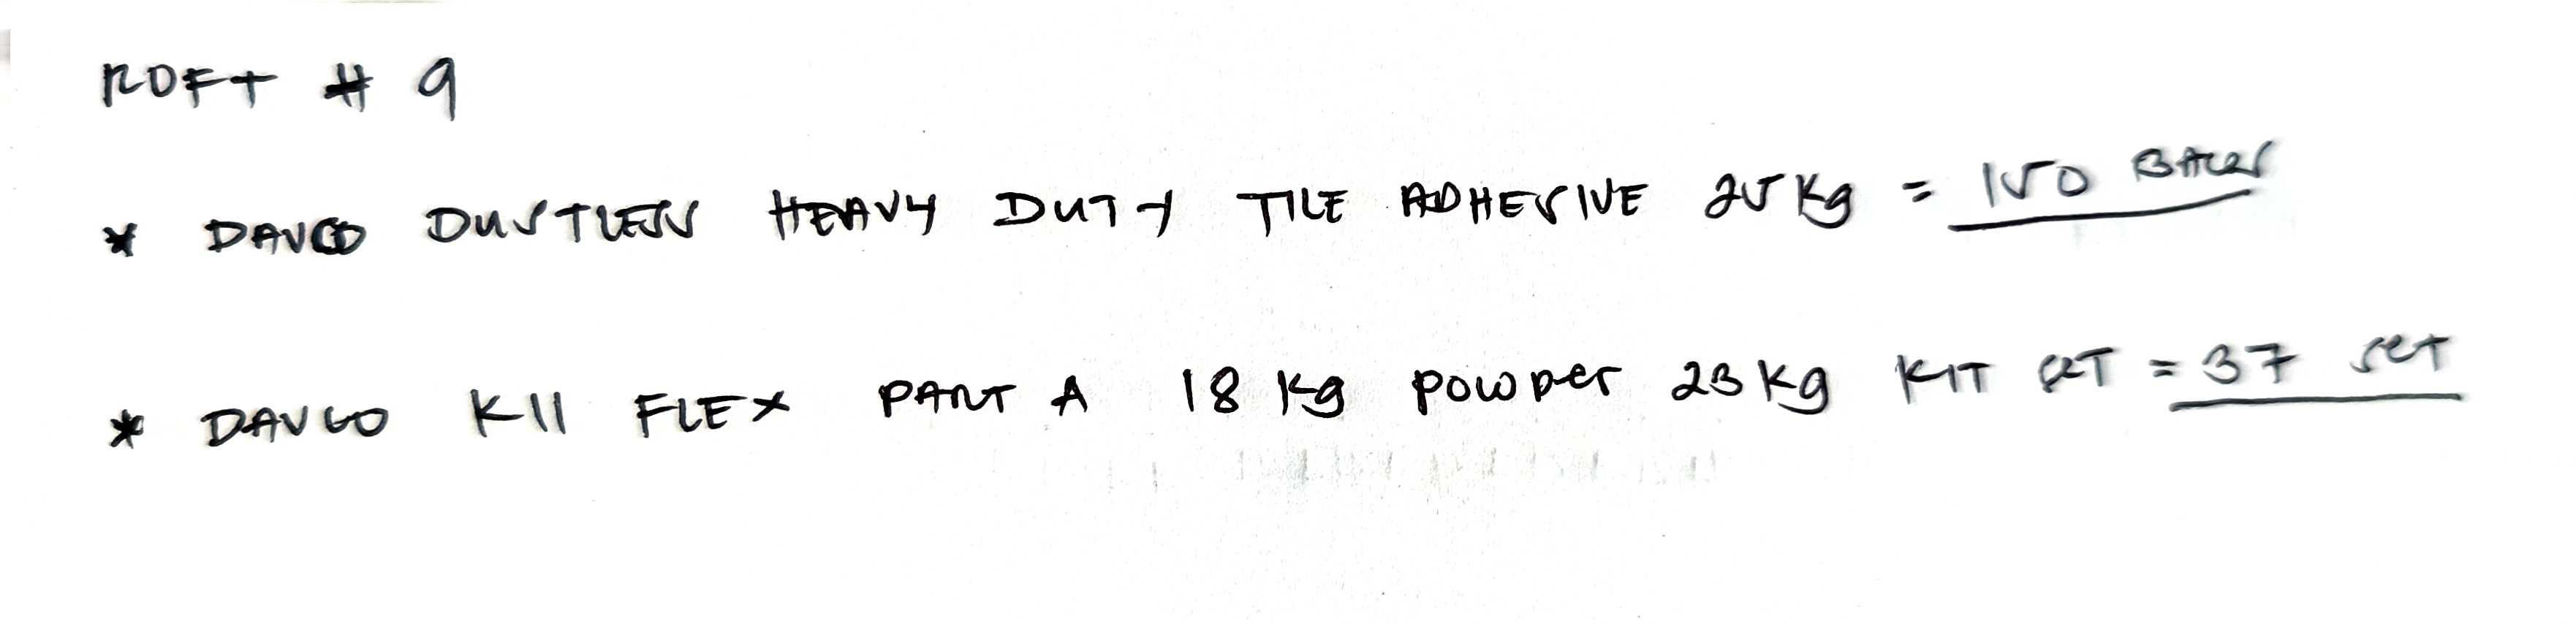 ROFT # 9
* DAVCO DUSTLESS HEAVY DUTY TILE ADHESIVE 25 Kg = 150 BAGS
* DAVCO K11 FLEX PART A 18 Kg POWDER 23 Kg KIT SET = 37 SET